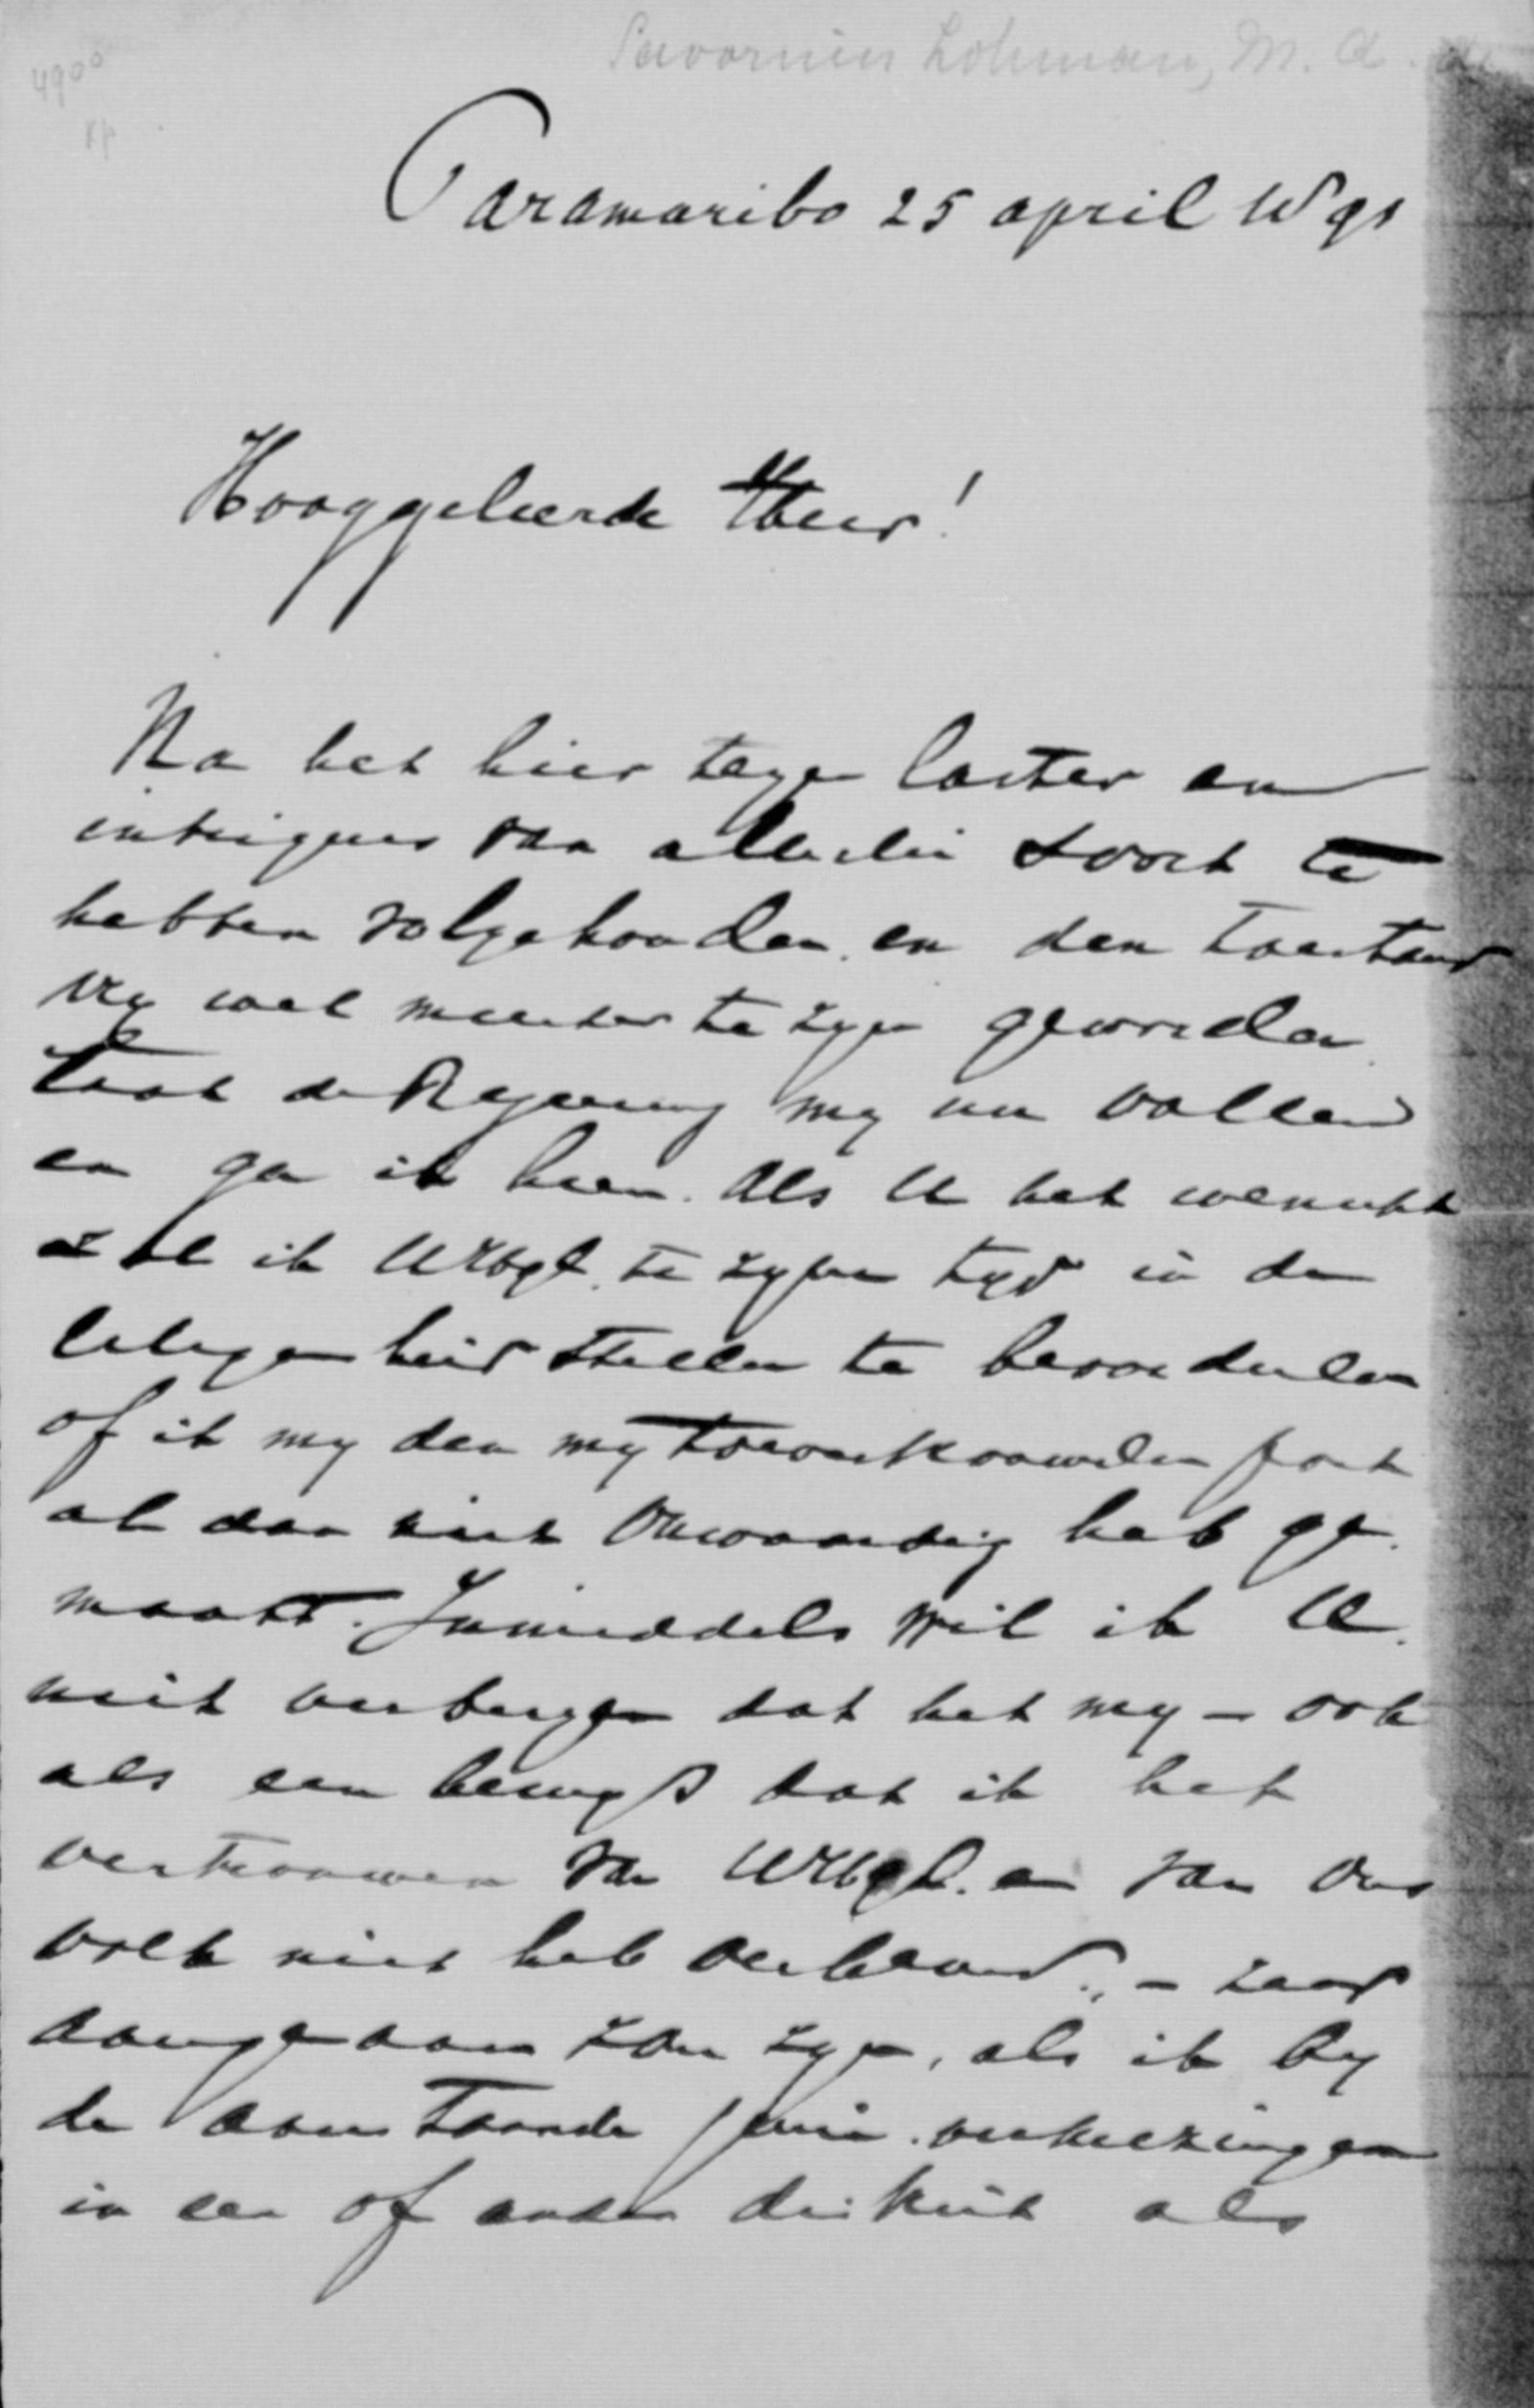 4900
Savornin Lohman, M. A. de
Paramaribo 25 april 1891
Hooggeleerde Heer!
Na het hier tegen laster en
intrigues van allerlei soort te
hebben volgehouden en den toestand
vry wel meester te zyn geworden
laat de Regeering my nu vallen
en ga ik heen. Als U het wenscht
zal ik UHGgel. te zyner tyd in de
gelegenheid stellen te beoordeelen
of ik my den my toevertrouwden post
al dan niet onwaardig heb ge-
maakt. Inmiddels wil ik U
niet verbergen dat het my – ook
als een bewys dat ik het
vertrouwen van UHGgel. en van ons
volk niet heb verbeurd, – zeer
aangenaam zou zyn, als ik by
de aanstaande Juni verkiezingen
in een of ander distrikt als